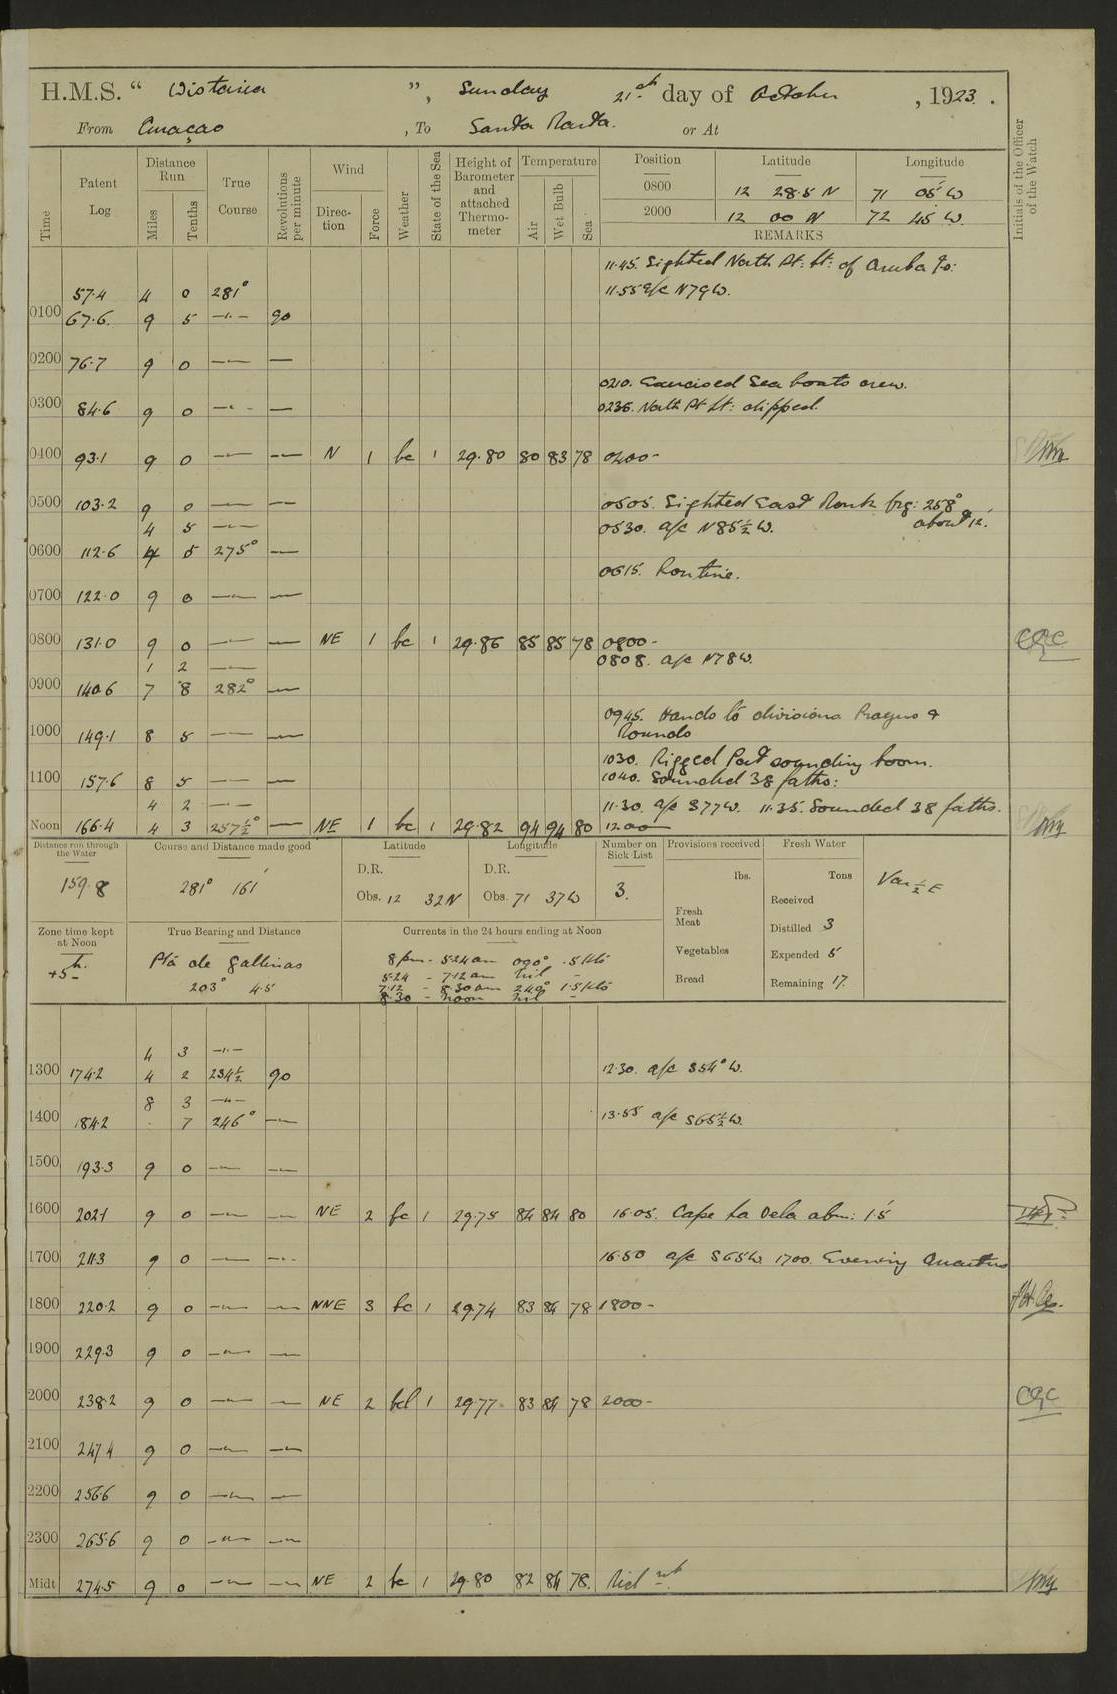 H.M.S. “ Wistaria ”, Sunday 21st day of October , 1923.
From Curaçao , To Santa Marta. or At
Time
Patent Log
Distance Run
Miles
Tenths
True Course
Revolutions per minute
Wind
Direction
Force
Weather
State of the Sea
Height of Barometer and attached Thermometer
Temperature
Air
Wet Bulb
Sea
Position Latitude Longitude
0800 12 28.5 N 71 05' W
2000 12 00 N 72 45 W.
REMARKS
Initials of the Officer of the Watch
11.45. Sighted North Pt: Lt: of Aruba
57.4 4 0 281° 11.55 a/c N79W.
0100 67.6. 9 5 —"— 90
0200 76.7 9 0 —"— —
0210. Exercised Sea boats crew.
0300 84.6 9 0 —"— — 0235. North Pt Lt: dipped.
0400 93.1 9 0 —"— —"— N 1 bc 1 29.80 80 83 78 0400-
0500 103.2 9 0 —"— —"— 0505. Sighted East Monk brg: 258°
4 5 —"— about 12'.
0530. a/c N85½W.
0600 112.6 4 5 275° —"—
0615. Routine.
0700 122.0 9 0 —"— —"—
0800 131.0 9 0 —"— —"— NE 1 bc 1 29.86 85 85 78 0800- CGC
1 2 —"— 0808. a/c N78W.
0900 140.6 7 8 282° —"—
0945. Hands to divisions Prayers &
1000 149.1 8 5 —"— —"— Rounds
1030. Rigged Port sounding boom.
1100 157.6 8 5 —"— —"— 1040. Sounded 38 faths:
4 2 —"— 11.30 a/c S77W. 11.35. Sounded 38 faths.
Noon 166.4 4 3 257½° —"— NE 1 bc 1 29.82 94 94 80 1200
Distance run through the Water
159.8
Course and Distance made good
281° 161'
Latitude
D.R.
Obs. 12 32N
Longitude
D.R.
Obs. 71 37W
Number on Sick List
3.
Provisions received
lbs.
Fresh Meat
Vegetables
Bread
Fresh Water
Tons
Received
Distilled 3
Expended 5
Remaining 17.
Var ½ E
Zone time kept at Noon
+5h.
True Bearing and Distance
Pta de Gallinas
203° 4.5
Currents in the 24 hours ending at Noon
8pm - 5.24am 090° .5 Kts
5.24 - 7.12am nil -
7.12 - 8.30am 240° 1.5 Kts
8.30 - noon nil -
4 3 —"—
1300 174.2 4 2 234½ 90 12.30. a/c S54°W.
8 3 —"—
1400 184.2 . 7 246° —"— 13.55 a/c S65½W.
1500 193.3 9 0 —"— —"—
1600 202.1 9 0 —"— —"— NE 2 bc 1 29.75 84 84 80 16.05. Cape La Vela abm: 15'
1700 211.3 9 0 —"— —"— 16.50 a/c S65W. 1700. Evening Quarters
1800 220.2 9 0 —"— —"— NNE 3 bc 1 29.74 83 84 78 1800-
1900 229.3 9 0 —"— —"—
2000 238.2 9 0 —"— —"— NE 2 bcl 1 29.77. 83 84 78 2000- CGC
2100 247.4 9 0 —"— —"—
2200 256.6 9 0 —"— —"—
2300 265.6 9 0 —"— —"—
Midt 274.5 9 0 —"— —"— NE 2 bc 1 29.80 82 84 78.